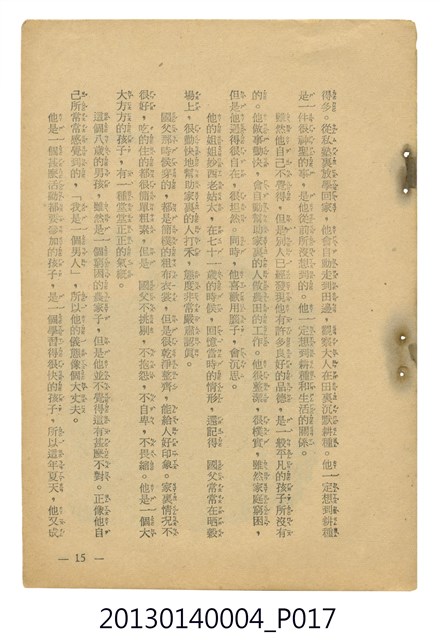 得多。從私塾裏放學回家，他會自動走到田邊，觀察大人在田裏沉默耕種。他一定想到耕種
是一件很神聖的事，是他從前所沒想到的。他一定想到耕種和生活的關係。
雖然他自己不覺得，但是別人已經發現他有許多良好的品德，是一般平凡的孩子所沒有
的。他做事勤快，會自動幫助家裏的人做農田的工作。他很整潔，很樸實，雖然家庭窮困，
但是他過得很自在，很坦然。同時，他喜歡用腦子，會沉思。
他的姐姐妙西老姑太，在七十一歲的時候，回憶當時的情形，還記得　國父常常在晒穀
場上，很勤快地幫助家裏的人打禾，態度非常嚴肅認真。
國父那時候穿的，都是簡樸的粗布衣裳，但是很乾淨整齊，能給人好印象。家裏情況不
很好，吃的住的都很簡單粗素，但是　國父不挑剔，不抱怨，不自卑，不畏縮。他是一個大
大方方的孩子，有一種堂堂正正的氣概。
這個八歲的男孩，雖然是一個窮困的農家子，但是他並不覺得這有甚麼不對。正像他自
己所常常感覺到的，「我是一個男人」，所以他的儀態像個大丈夫。
他是一個甚麼活動都要參加的孩子，是一個學習得很快的孩子，所以這年夏天，他又成
— 15 —
20130140004_P017